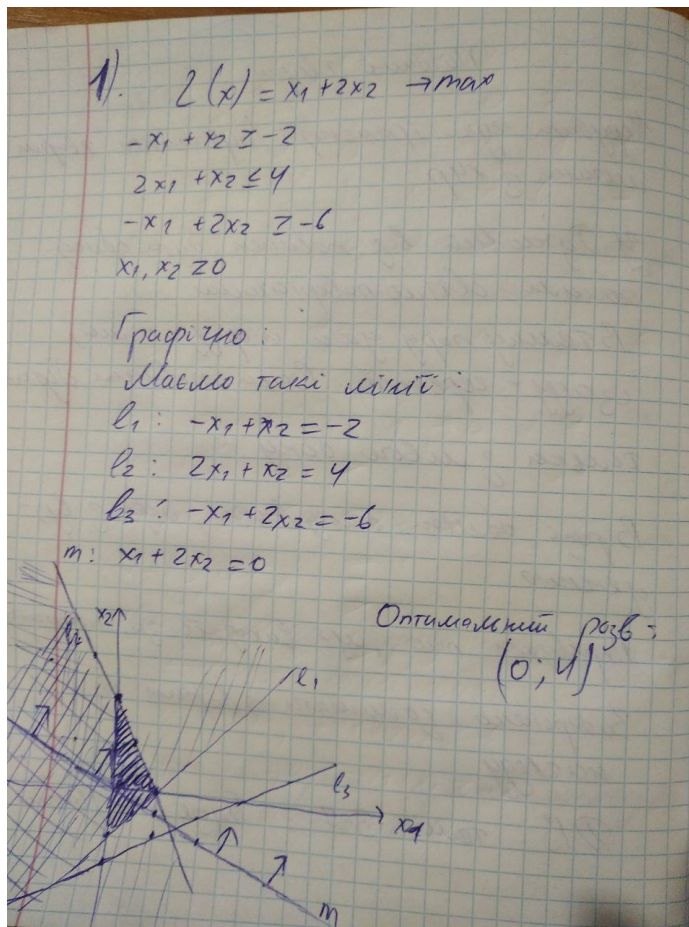 1). Z(x) = x1 + 2x2 → max
-x1 + x2 ≥ -2
2x1 + x2 ≤ 4
-x1 + 2x2 ≥ -6
x1, x2 ≥ 0
Графічно :
Маємо такі лінії :
l1 : -x1 + x2 = -2
l2 : 2x1 + x2 = 4
l3 : -x1 + 2x2 = -6
m : x1 + 2x2 = 0
x2
l2
Оптимальний розв :
(0 ; 4)
l1
l3
x1
m